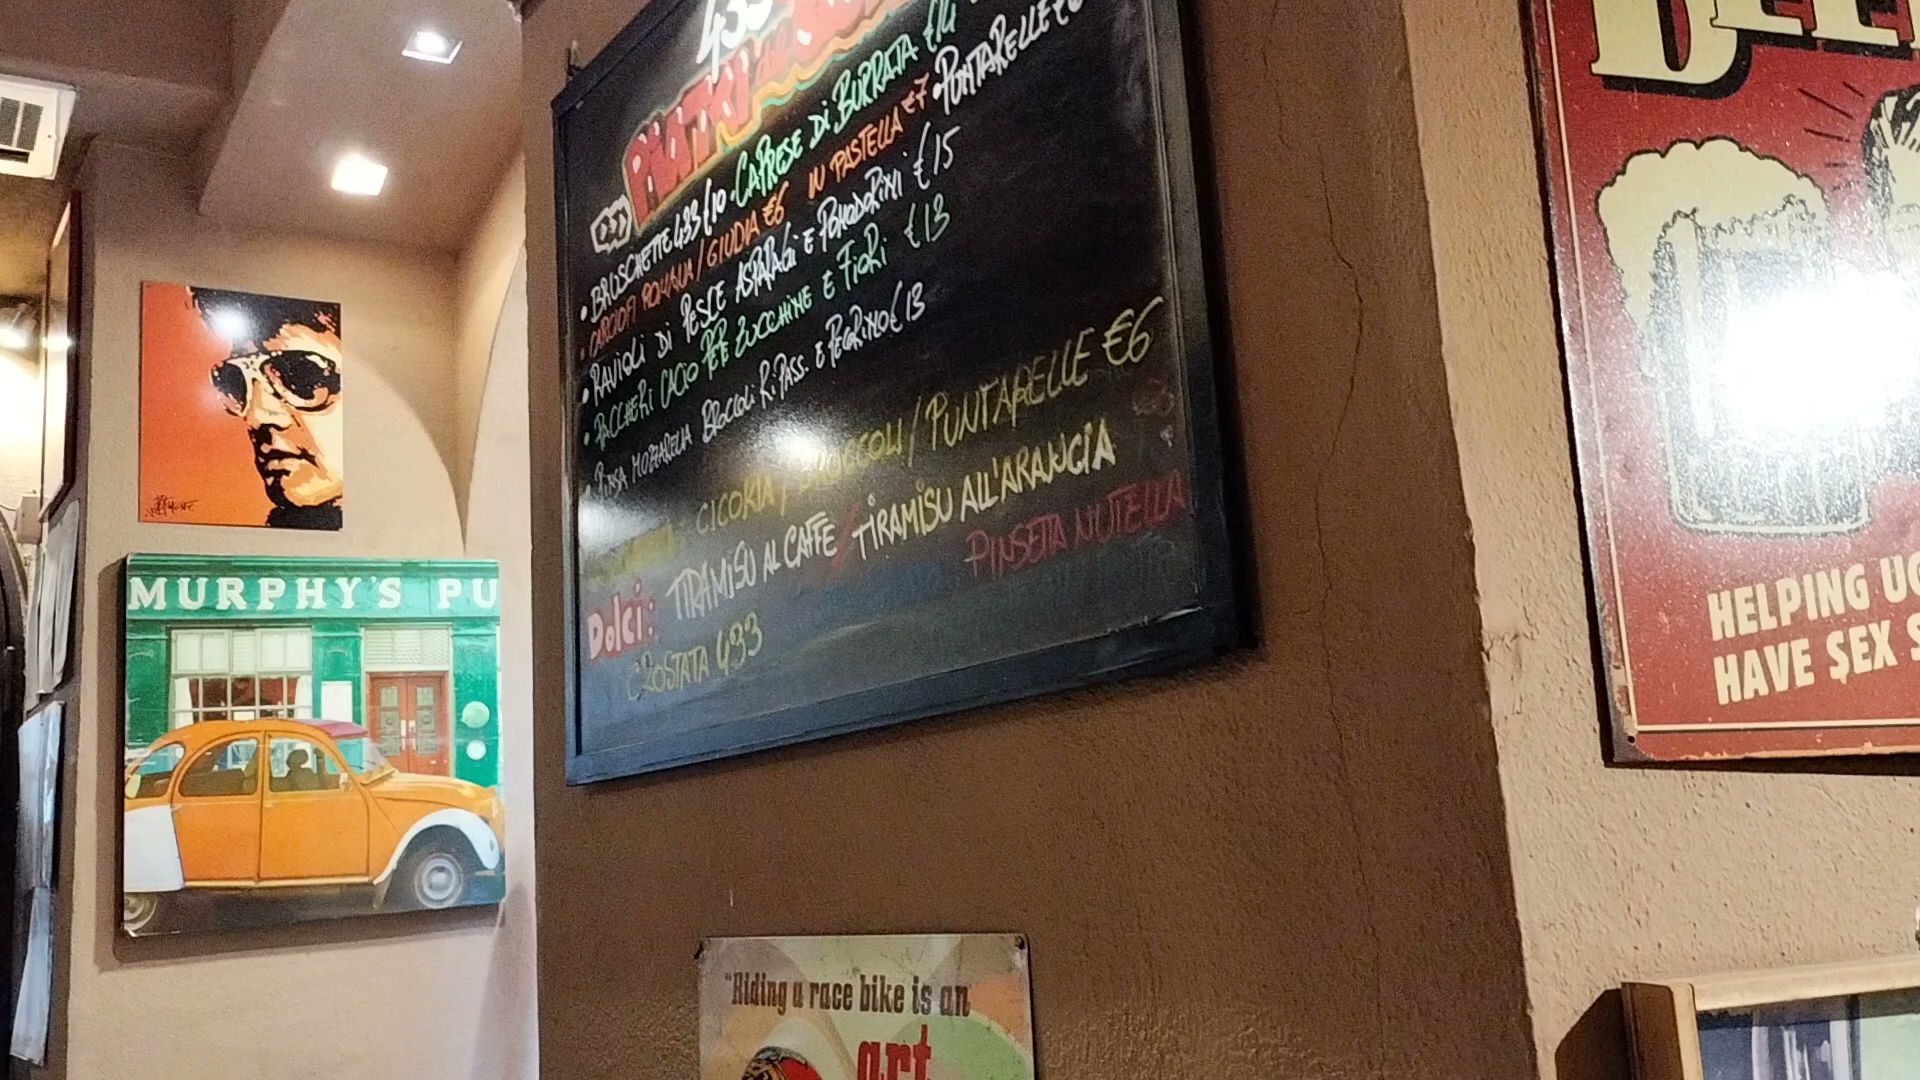 433
BRUSCHETTE 433 €10 • CAPRESE DI BURRATA €14
• CARCIOFI ROMANA / GIUDIA €6 IN PASTELLA €7 • PUNTARELLE €6
• RAVIOLI DI PESCE ASPARAGI E POMODORINI €15
• PACCHERI CACIO PEPE ZUCCHINE E FIORI €13
• PINSA MOZZARELLA BROCCOLI RIPASS. E PEGRINO €13
CICORIA / BROCCOLI / PUNTARELLE €6
DOLCI: TIRAMISU AL CAFFE / TIRAMISU ALL'ARANCIA
CROSTATA 433 PINSETTA NUTELLA
MURPHY'S PU
"Riding a race bike is an
art
BEE
HELPING UG
HAVE SEX S